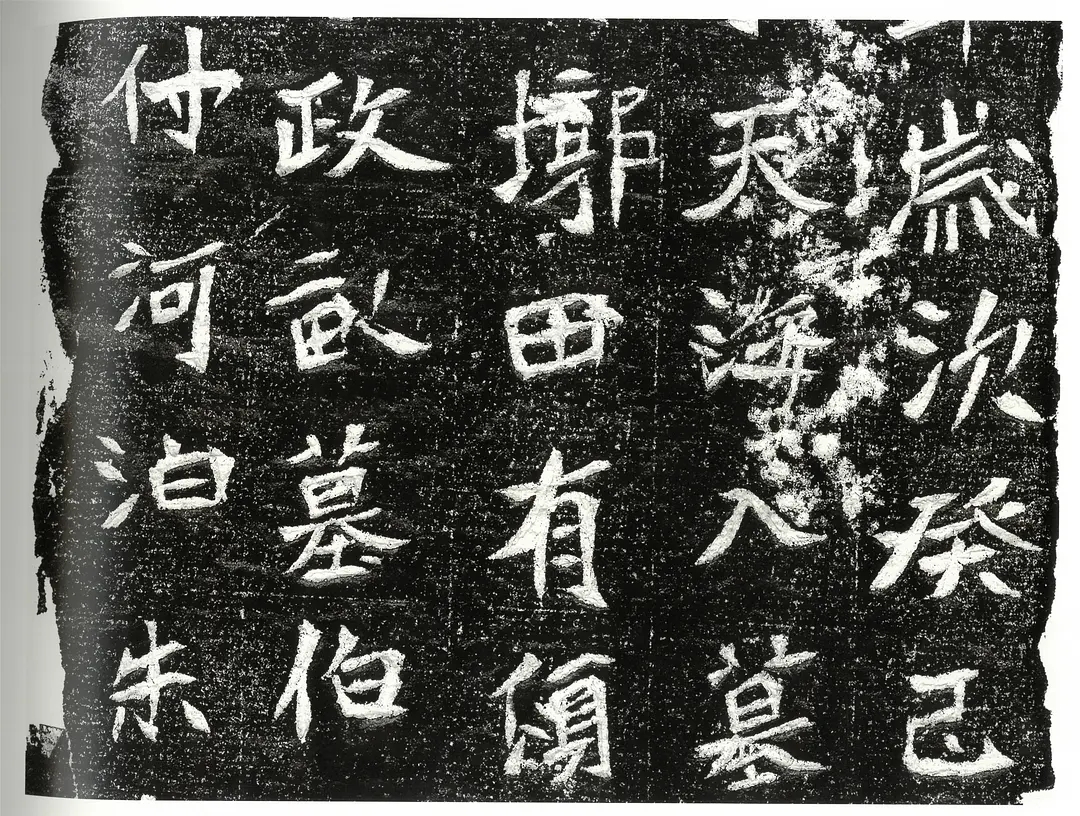 歲次癸巳
天海入墓
墎田有
政畝墓伯
付河泊朱